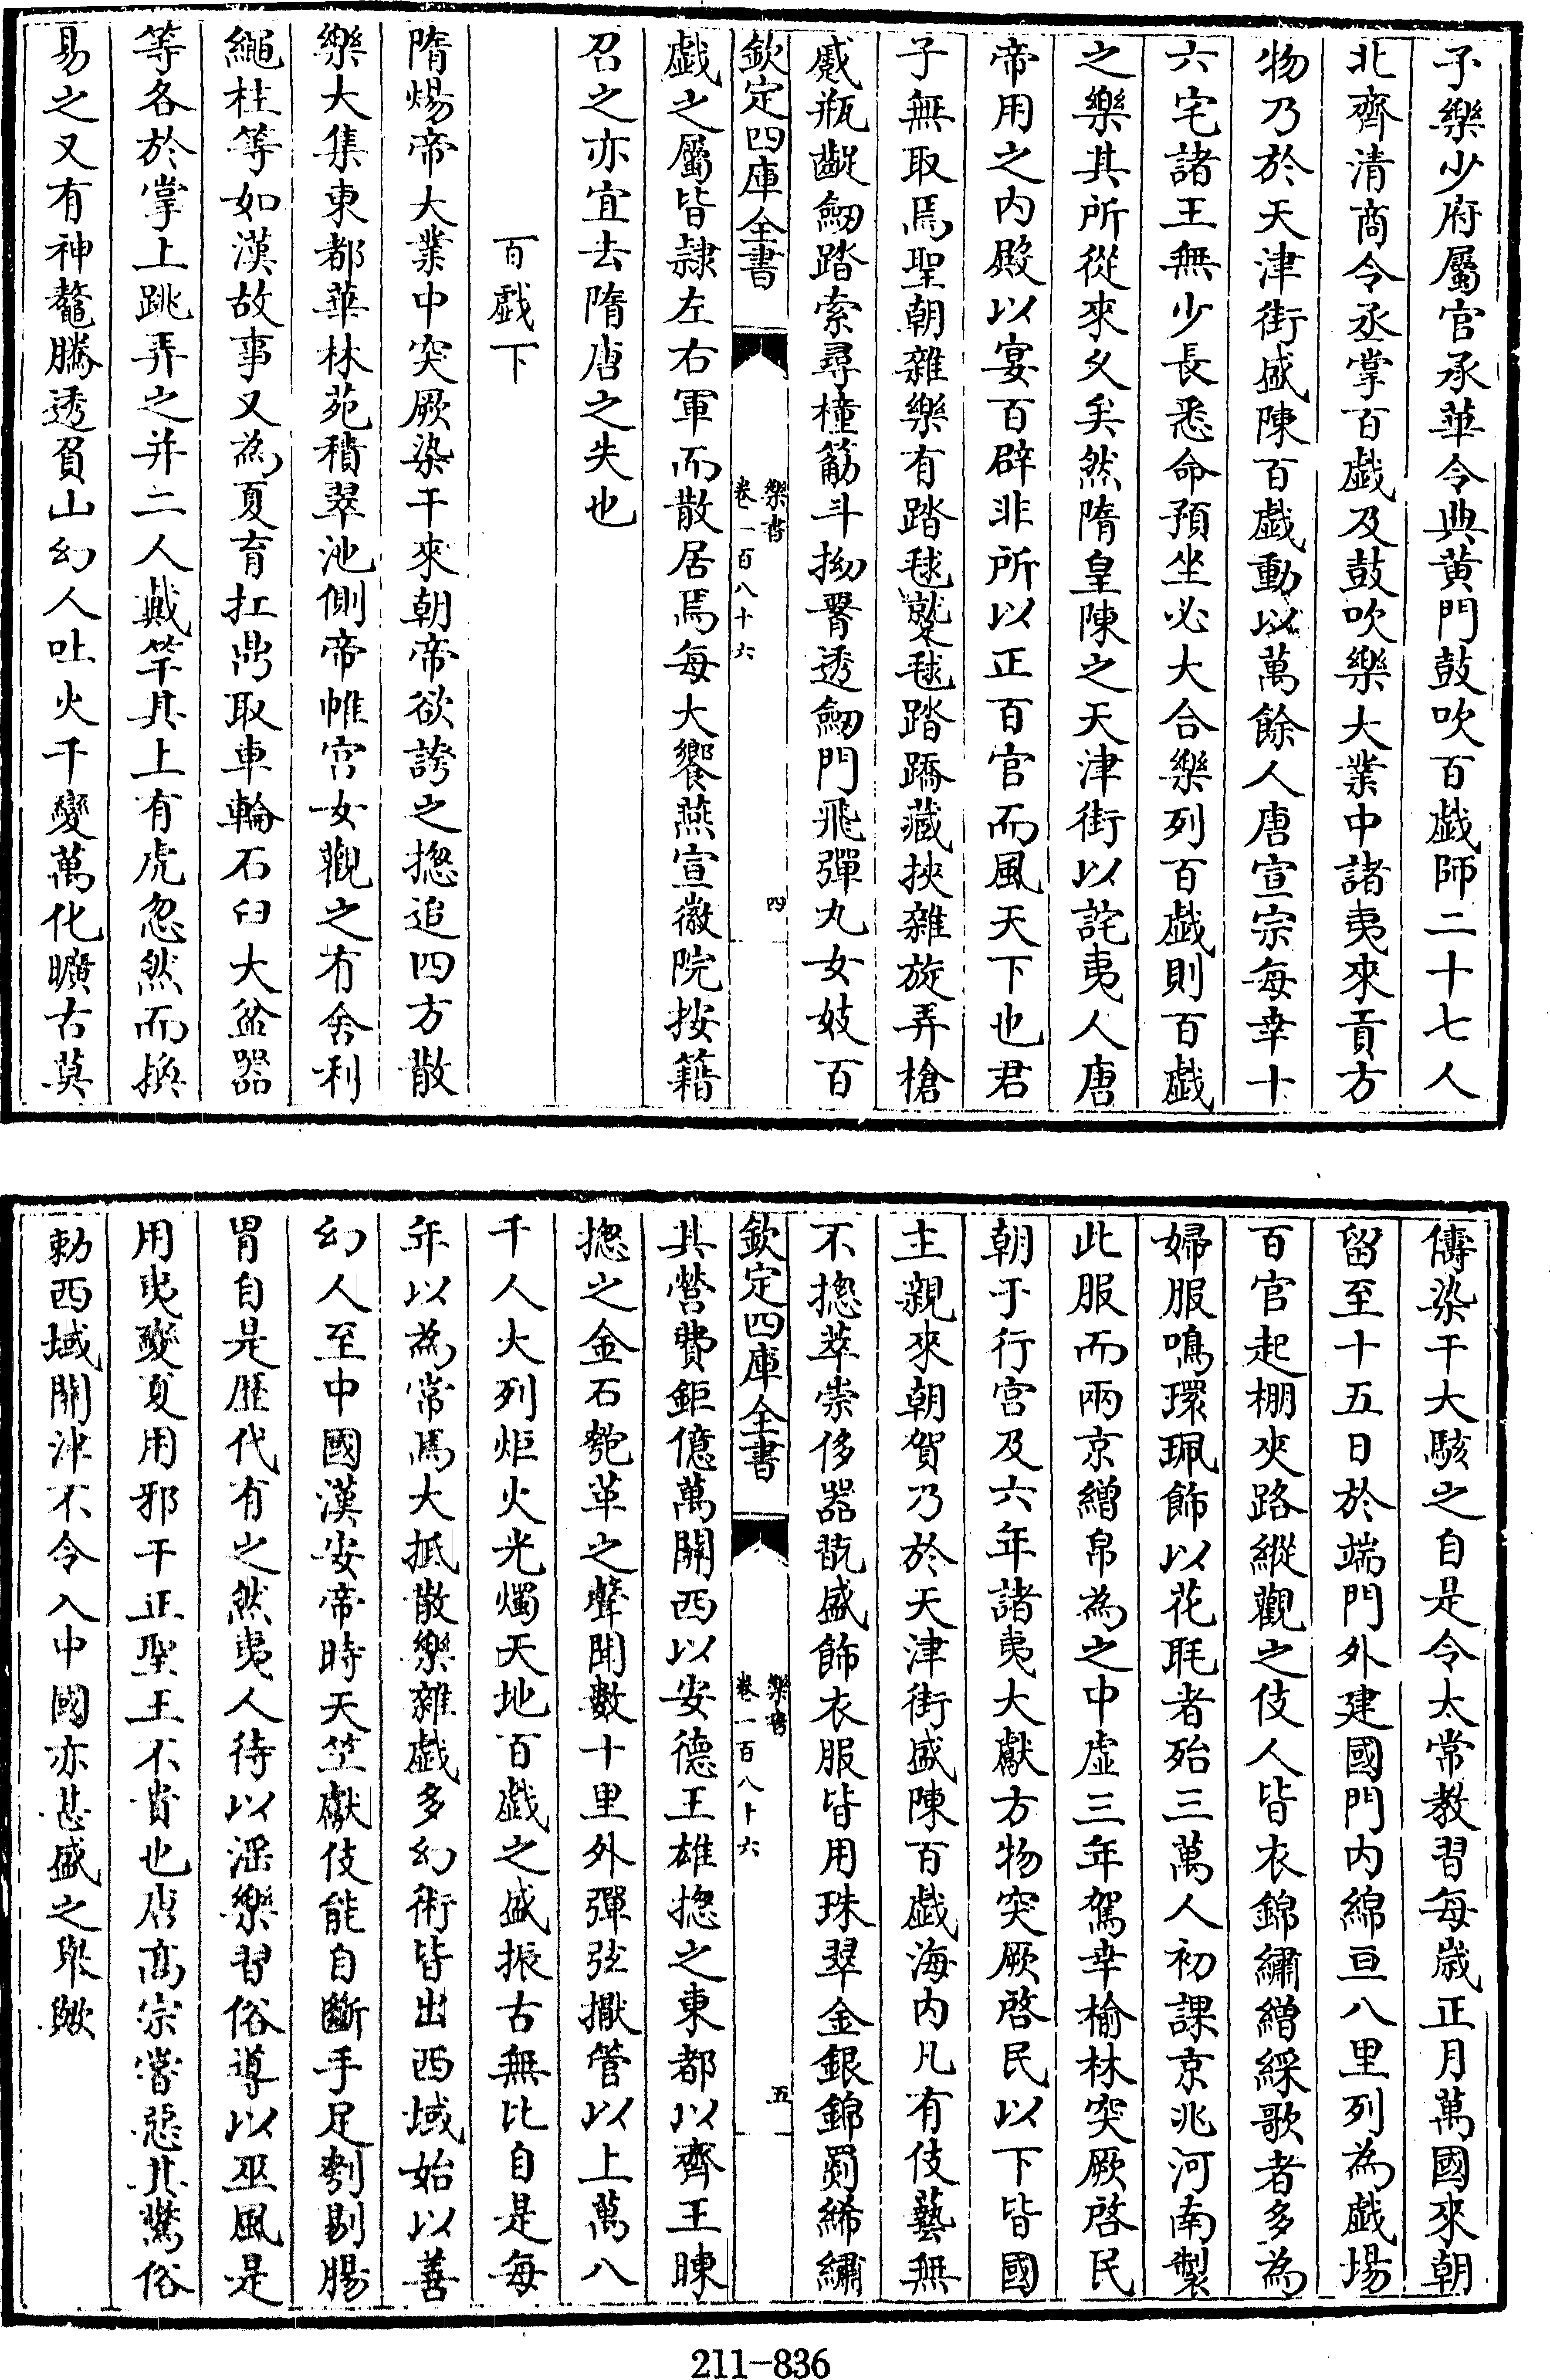 予樂少府屬官承華令典黄門鼓吹百戯師二十七人
北齊清商令丞掌百戯及鼓吹樂大業中諸夷來貢方
物乃於天津街盛陳百戯動以萬餘人唐宣宗每幸十
六宅諸王無少長悉命預坐必大合樂列百戯則百戯
之樂其所從來久矣然隋皇陳之天津街以詫夷人唐
帝用之内殿以宴百辟非所以正百官而風天下也君
子無取焉聖朝雜樂有踏毬蹵毬踏蹻藏挾雜旋弄槍
瓶齪劒踏索尋橦觔斗拗腎透劒門飛彈丸女妓百
欽定四庫全書
樂書
卷一百八十六
四
戯之屬皆隷左右軍而散居焉每大饗燕宣徽院按籍
召之亦宜去隋唐之失也
百戯下
隋煬帝大業中突厥染干來朝帝欲誇之揔追四方散
樂大集東都華林苑積翠池側帝帷宫女觀之有舍利
繩柱等如漢故事又為夏育扛鼎取車輪石臼大盆器
等各於掌上跳弄之并二人戴竿其上有虎忽然而換
易之又有神鼇騰透負山幻人吐火千變萬化曠古莫
儔染干大駭之自是令太常教習每歲正月萬國來朝
留至十五日於端門外建國門内綿亘八里列為戯場
百官起棚夾路縱觀之伎人皆衣錦繡繒綵歌者多為
婦服鳴環珮飾以花毦者殆三萬人初課京兆河南製
此服而兩京繒帛為之中虚三年駕幸榆林突厥啓民
朝于行宫及六年諸夷大獻方物突厥啓民以下皆國
主親來朝賀乃於天津街盛陳百戯海内凡有伎藝無
不揔萃崇侈器翫盛飾衣服皆用珠翠金銀錦罽絺繡
欽定四庫全書
樂書
卷一百八十六
五
其營費鉅億萬關西以安德王雄揔之東都以齊王暕
揔之金石匏革之聲聞數十里外彈弦擫管以上萬八
千人大列炬火光燭天地百戯之盛振古無比自是每
年以為常焉大抵散樂雜戯多幻術皆出西域始以善
幻人至中國漢安帝時天竺獻伎能自斷手足刳剔腸
胃自是歴代有之然夷人待以淫樂習俗導以巫風是
用夷變夏用邪干正聖王不貴也唐高宗嘗惡其驚俗
勅西域關津不令入中國亦甚盛之舉歟
211-836